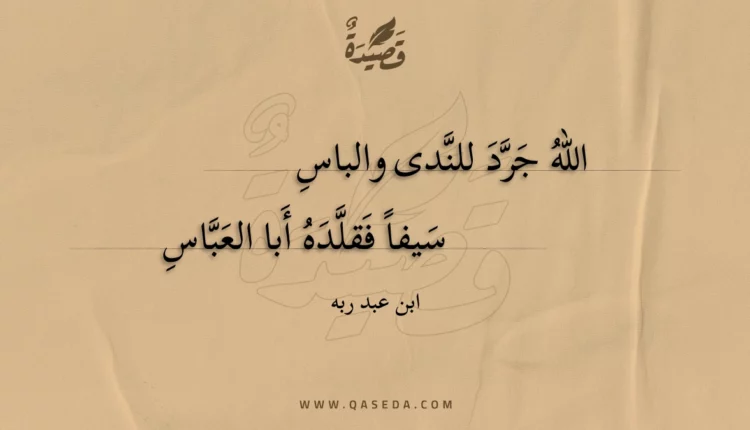 قَصِيدَةٌ
اللهُ جَرَّدَ للنَّدى والباسِ
سَيفاً فَقلَّدَهُ أَبا العَبَّاسِ
ابن عبد ربه
WWW.QASEDA.COM